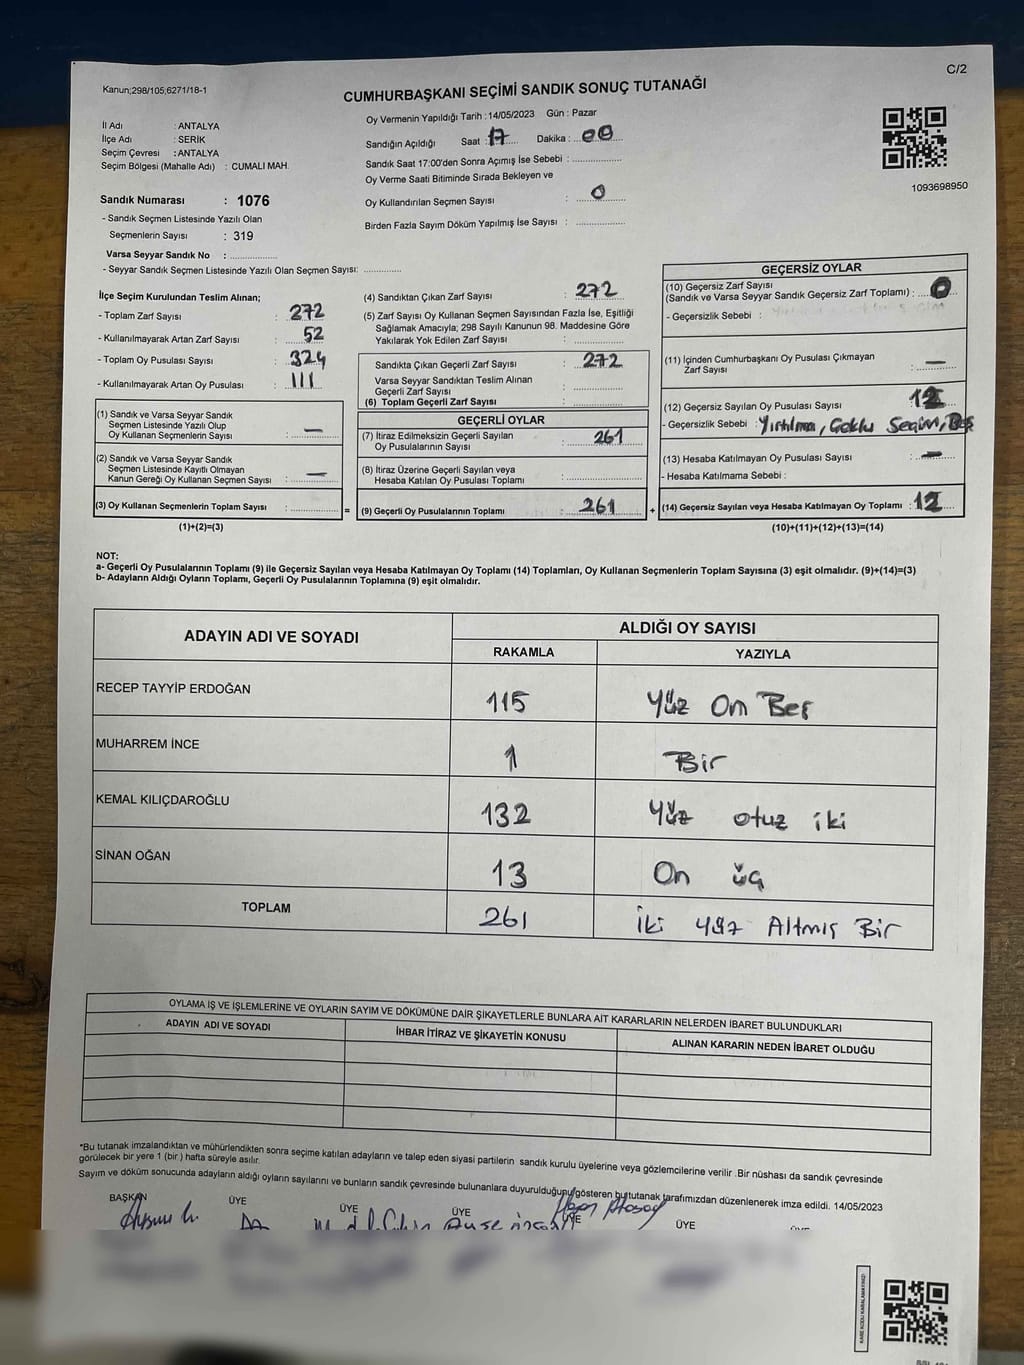 C/2
Kanun;298/105;6271/18-1
CUMHURBAŞKANI SEÇİMİ SANDIK SONUÇ TUTANAĞI
İl Adı : ANTALYA
İlçe Adı : SERİK
Seçim Çevresi : ANTALYA
Seçim Bölgesi (Mahalle Adı) : CUMALI MAH.
Oy Vermenin Yapıldığı Tarih : 14/05/2023 Gün : Pazar
Sandığın Açıldığı Saat : 17 Dakika : 00
Sandık Saat 17:00'den Sonra Açımış İse Sebebi :
Oy Verme Saati Bitiminde Sırada Bekleyen ve
Oy Kullandırılan Seçmen Sayısı : 0
Birden Fazla Sayım Döküm Yapılmış İse Sayısı :
1093698950
Sandık Numarası : 1076
- Sandık Seçmen Listesinde Yazılı Olan
Seçmenlerin Sayısı : 319
Varsa Seyyar Sandık No :
- Seyyar Sandık Seçmen Listesinde Yazılı Olan Seçmen Sayısı:
İlçe Seçim Kurulundan Teslim Alınan;
- Toplam Zarf Sayısı : 272
- Kullanılmayarak Artan Zarf Sayısı : 52
- Toplam Oy Pusulası Sayısı : 324
- Kullanılmayarak Artan Oy Pusulası : 111
(1) Sandık ve Varsa Seyyar Sandık
Seçmen Listesinde Yazılı Olup
Oy Kullanan Seçmenlerin Sayısı : —
(2) Sandık ve Varsa Seyyar Sandık
Seçmen Listesinde Kayıtlı Olmayan
Kanun Gereği Oy Kullanan Seçmen Sayısı : —
(3) Oy Kullanan Seçmenlerin Toplam Sayısı : =
(1)+(2)=(3)
(4) Sandıktan Çıkan Zarf Sayısı : 272
(5) Zarf Sayısı Oy Kullanan Seçmen Sayısından Fazla İse, Eşitliği
Sağlamak Amacıyla; 298 Sayılı Kanunun 98. Maddesine Göre
Yakılarak Yok Edilen Zarf Sayısı :
Sandıkta Çıkan Geçerli Zarf Sayısı : 272
Varsa Seyyar Sandıktan Teslim Alınan
Geçerli Zarf Sayısı :
(6) Toplam Geçerli Zarf Sayısı :
GEÇERLİ OYLAR
(7) İtiraz Edilmeksizin Geçerli Sayılan
Oy Pusulasının Sayısı : 261
(8) İtiraz Üzerine Geçerli Sayılan veya
Hesaba Katılan Oy Pusulası Toplamı :
(9) Geçerli Oy Pusulalarının Toplamı : 261 +
GEÇERSİZ OYLAR
(10) Geçersiz Zarf Sayısı
(Sandık ve Varsa Seyyar Sandık Geçersiz Zarf Toplamı) : 0
- Geçersizlik Sebebi :
(11) İçinden Cumhurbaşkanı Oy Pusulası Çıkmayan
Zarf Sayısı : —
(12) Geçersiz Sayılan Oy Pusulası Sayısı : 12
- Geçersizlik Sebebi : Yırtılma, Çoklu Seçim, Boş
(13) Hesaba Katılmayan Oy Pusulası Sayısı : —
- Hesaba Katılmama Sebebi :
(14) Geçersiz Sayılan veya Hesaba Katılmayan Oy Toplamı : 12
(10)+(11)+(12)+(13)=(14)
NOT:
a- Geçerli Oy Pusulalarının Toplamı (9) ile Geçersiz Sayılan veya Hesaba Katılmayan Oy Toplamı (14) Toplamları, Oy Kullanan Seçmenlerin Toplam Sayısına (3) eşit olmalıdır. (9)+(14)=(3)
b- Adayların Aldığı Oyların Toplamı, Geçerli Oy Pusulalarının Toplamına (9) eşit olmalıdır.
ADAYIN ADI VE SOYADI
ALDIĞI OY SAYISI
RAKAMLA YAZIYLA
RECEP TAYYİP ERDOĞAN 115 Yüz On Beş
MUHARREM İNCE 1 Bir
KEMAL KILIÇDAROĞLU 132 Yüz otuz iki
SİNAN OĞAN 13 On üç
TOPLAM 261 İki yüz Altmış Bir
OYLAMA İŞ VE İŞLEMLERİNE VE OYLARIN SAYIM VE DÖKÜMÜNE DAİR ŞİKAYETLERLE BUNLARA AİT KARARLARIN NELERDEN İBARET BULUNDUKLARI
ADAYIN ADI VE SOYADI İHBAR İTİRAZ VE ŞİKAYETİN KONUSU ALINAN KARARIN NEDEN İBARET OLDUĞU
*Bu tutanak imzalandıktan ve mühürlendikten sonra seçime katılan adayların ve talep eden siyasi partilerin sandık kurulu üyelerine veya gözlemcilerine verilir .Bir nüshası da sandık çevresinde
görülecek bir yere 1 (bir ) hafta süreyle asılır.
Sayım ve döküm sonucunda adayların aldığı oyların sayılarını ve bunların sandık çevresinde bulunanlara duyurulduğunu gösteren bu tutanak tarafımızdan düzenlenerek imza edildi. 14/05/2023
BAŞKAN ÜYE ÜYE ÜYE ÜYE ÜYE
KARE KODU KARALAMAYINIZ!